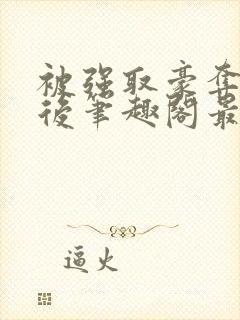 被强取豪夺
后笔趣阁最
逼火